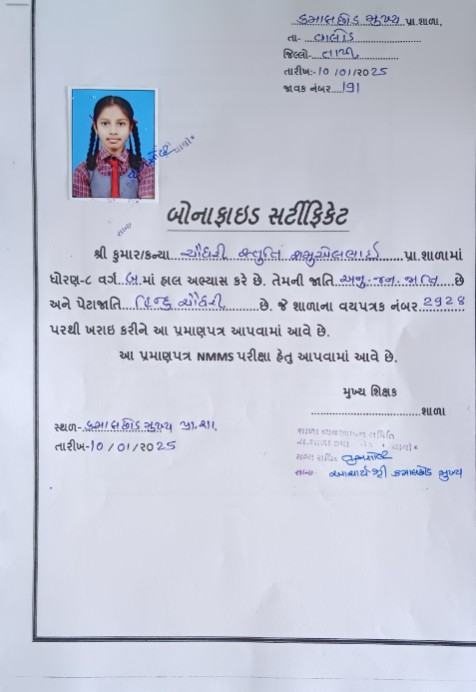 કમાલછોડ મુખ્ય પ્રા.શાળા.
તા- વાલોડ
જિલ્લો- તાપી
તારીખ:-10 /01/2025
જાવક નંબર 191
બોનાફાઇડ સર્ટીફિકેટ
શ્રી કુમાર/કન્યા ચૌધરી સ્તુતિ શમુએલભાઈ પ્રા.શાળામાં
ધોરણ-૮ વર્ગ બ માં હાલ અભ્યાસ કરે છે. તેમની જાતિ અનુ.જન.જાતિ છે
અને પેટાજાતિ હિન્દુ ચૌધરી છે. જે શાળાના વયપત્રક નંબર 2928
પરથી ખરાઇ કરીને આ પ્રમાણપત્ર આપવામાં આવે છે.
આ પ્રમાણપત્ર NMMS પરીક્ષા હેતુ આપવામાં આવે છે.
મુખ્ય શિક્ષક
શાળા
સ્થળ- કમાલછોડ મુખ્ય પ્રા.શા.
તારીખ-10 / 01 /2025
શાળા વ્યવસ્થાપન સમિતિ
સભ્ય સચિવ
આચાર્યશ્રી કમાલછોડ મુખ્ય